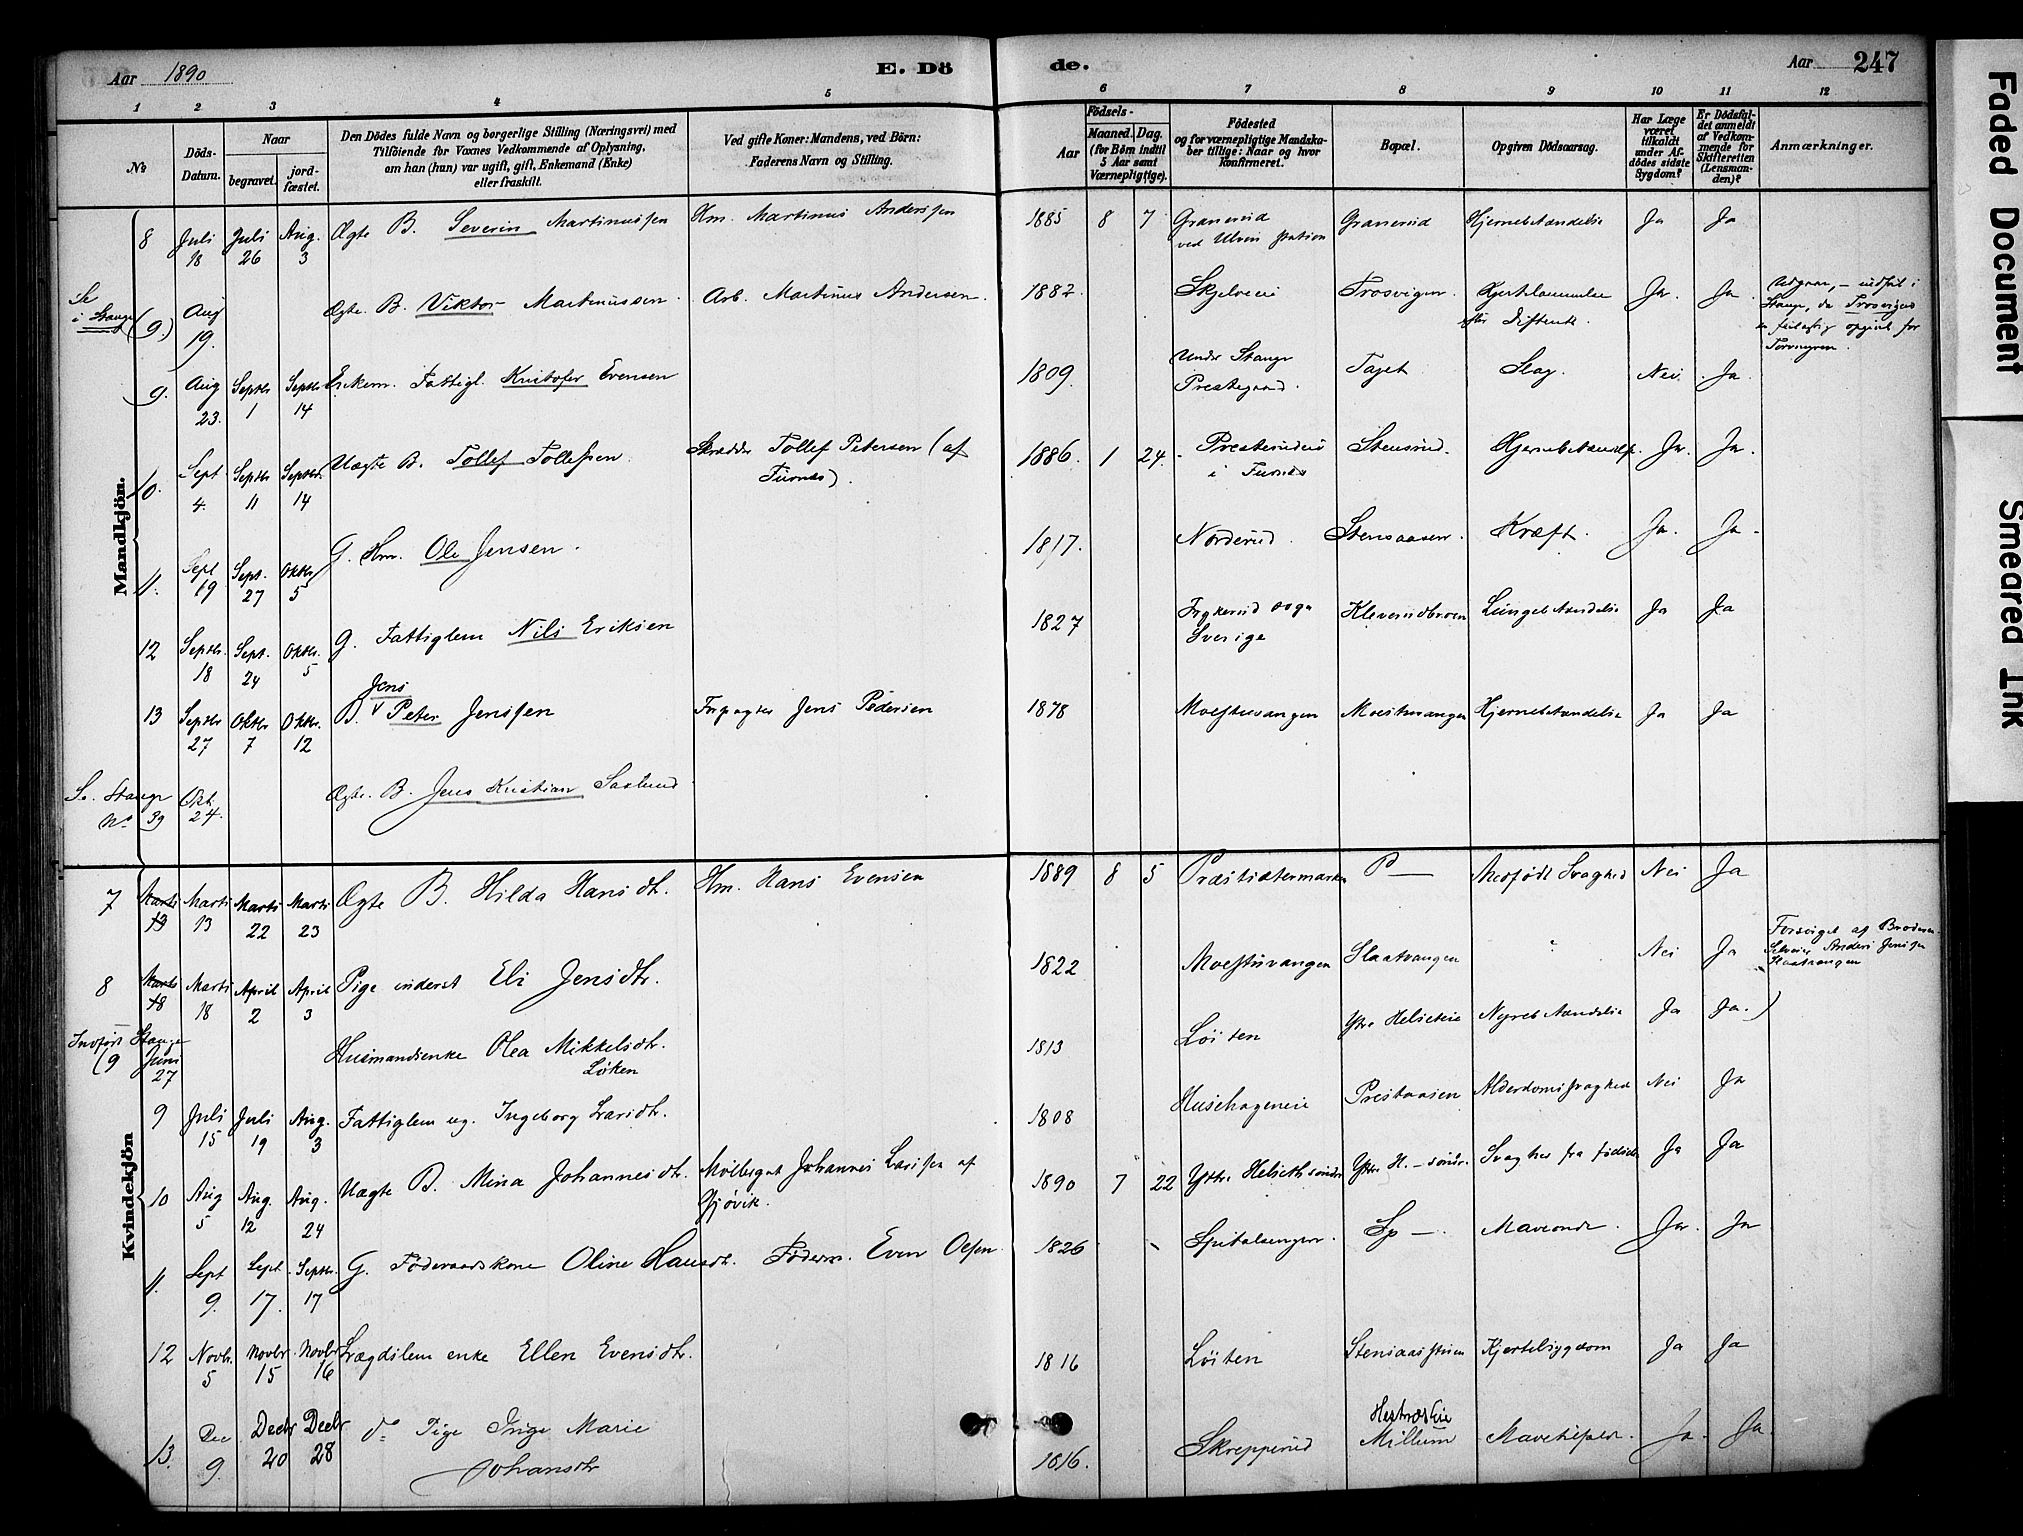 Aar 1890
E. Dö
de.
Aar
247
1 2 3 4 5 6 7 8 9 10 11 12
No
Döds-Datum.
Naar
begravet.
jord-fæstet.
Den Dödes fulde Navn og borgerlige Stilling (Næringsvei) med
Tilföiende for Voxnes Vedkommende af Oplysning,
om han (hun) var ugift, gift, Enkemand (Enke)
eller fraskilt.
Ved gifte Koner: Mandens, ved Börn:
Faderens Navn og Stilling.
Födsels-
Aar
Maaned. Dag.
(for Börn indtil
5 Aar samt
Værnepligtige).
Födested
og for værnepligtige Mandska-
ber tillige: Naar og hvor
konfirmeret.
Bopæl.
Opgiven Dödsaarsag.
Har Læge
været
tilkaldt
under Af-
dödes sidste
Sygdom?
Er Dödsfal-
det anmeldt
af Vedkom-
mende for
Skifteretten
(Lensman-
den)?
Anmærkninger.
Mandkjön.
8 Juli 18 Juli 26 Aug. 3 Ægte B. Severin Martinussen Hm. Martinus Anderssen 1885 8 7 Granerud ved Ulven station Granerud Hjernebetændelse Ja Ja
Se i Stange (9.) Aug 19. Ægte B. Viktor Martinussen. Arb. Martinus Andersen. 1882. Skjelveie Frosvigen Hjertelammelse efter Difterit. Ja. Ja. Udgaar, - indført i Stange, da Frosvigen er feilagtig opgivet for Torvmyren.
9. Aug 23. Septbr 1 Septbr 14 Enkem. Fattigl. Kristofer Evensen 1809. Under Stange Prestegaard. Taget Slag. Nei. Ja.
10. Sept 4. Septbr 11 Septbr. 14 Uægte B. Tollef Tollefsen. Skrædder Tollef Petersen (af Furnæs). 1886. 1 24. Presterudeie i Furnæs Stensrud. Hjernebetændelse. Ja. Ja.
11. Sept 19 Sept. 27 Oktbr 5 G. Hm. Ole Jensen. 1817. Norderud. Stensaasen. Kræft. Ja. Ja.
12 Septbr. 18 Sept. 24 Oktbr. 5 G. Fattiglem Nils Eriksen 1827 Frykerud sogn Sverige Kleverudbroen Lungebetændelse Ja Ja
13 Septbr 27 Oktbr 7 Oktbr. 12 B. Jens Peter Jenssen Forpagter Jens Pedersen 1878 Moestuvangen Moestuvangen Hjernebetændelse Ja Ja
Se. Stange No 39 Okt. 24. Ægte. B. Jens Kristian Saxlund
Kvindekjön
7 Marts 13 Marts 13 Marts 22 Marts 23 Ægte B. Hilda Hansdtr. Hm. Hans Evensen 1889 8 5 Præstsætermarken P — Medfødt Svaghed Nei Ja
8 Marts 18 Marts 18 April 2 April 3 Pige inderst Eli Jensdtr. 1822 Moestuvangen Slaatvangen " Nei Ja Forsørget af Broderen Selveier Anders Jenssen Slaatvangen
Indført Stange (9 Juni 27 Husmandsenke Olea Mikkelsdtr. Løken 1813 Løiten Ytre Helseteie Nyrebetændelse Ja Ja.)
9 Juli 15 Juli 19 Aug. 3 Fattiglem ug. Ingeborg Larsdtr. 1808 Husehageneie Prestaasen Alderdomssvaghed Nei Ja
10 Aug 5 Aug. 12 Aug. 24 Uægte B. Mina Johannesdtr. Møllergut Johannes Larssen af Gjøvik. 1890 7 22 Yttre Helseth søndre Yttre H. — søndr. Svaghed fra fødsel Ja Ja
11. Sept 9. Sept. 17. Septbr. 17 G. Føderaadskone Oline Hansdtr. Føderm. Even Olsen 1826 Spitalsengen. Sp —. Maveonde. Ja. Ja
12 Novbr. 5 Novbr. 15 Novbr 16 Lægdslem enke Ellen Evensdtr. 1816 Løiten Stensaasstuen Kjertelsygdom Ja Ja
13. Dec 9. Decbr 20 Decbr 28 do Pige Inge Marie Johansdtr 1816. Skrepperud Hestnæseie Millum Ja. Ja
Faded Document
Smeared Ink